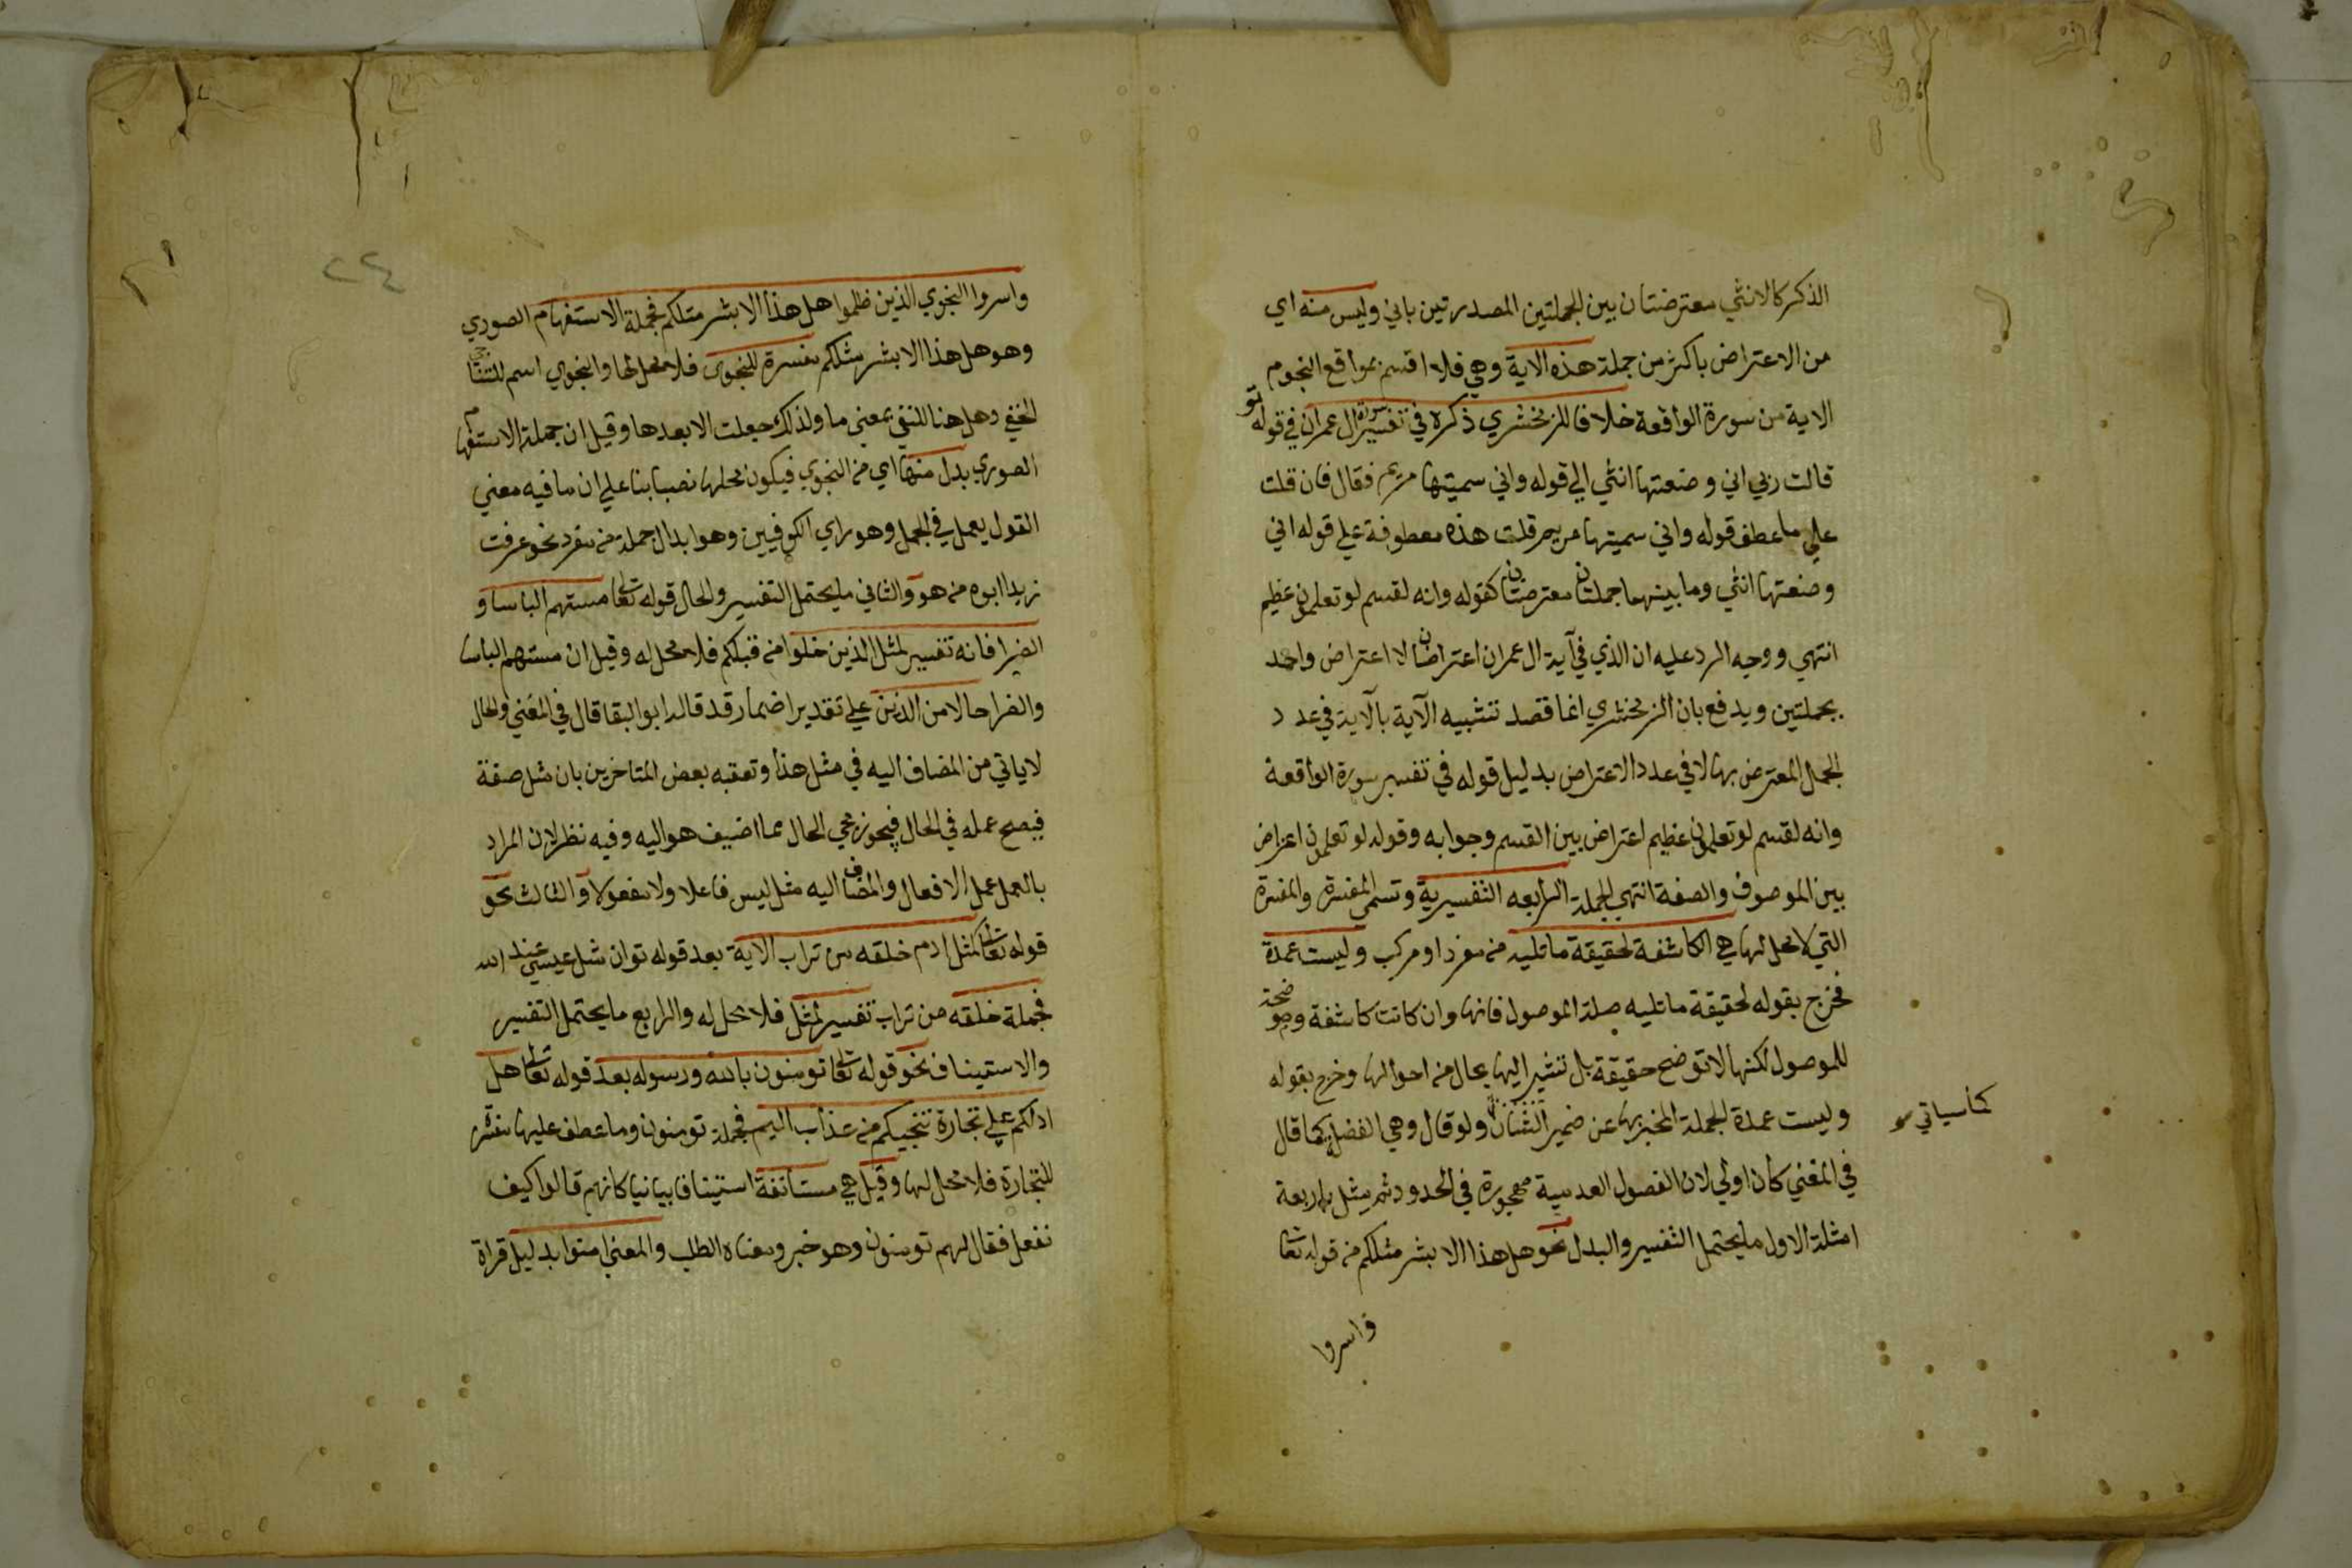 الذكر كالانثي معترضتان بين الجملتين المصدرتين باني وليس منه اي
من الاعتراض باكثر من جملة هذه الاية وهي فلا اقسم بمواقع النجوم
الاية من سورة الواقعة خلافا للزمخشري ذكره في تفسير سورة ال عمران في قوله تو
قالت ربي اني وضعتها انثي الي قوله واني سميتها مريم فقال فان قلت
علي ما عطف قوله واني سميتها مريم قلت هذه معطوفة علي قوله اني
وضعتها انثي وما بينهما جملتان معترضتان كقوله وانه لقسم لو تعلمون عظيم
انتهي ووجه الرد عليه ان الذي في آية ال عمران اعتراضان لا اعتراض واحد
بجملتين ويدفع بان الزمخشري انما قصد تشبيه الآية بالآية في عدد
الجمل المعترض بها لا في عدد الاعتراض بدليل قوله في تفسير سورة الواقعة
وانه لقسم لو تعلمون عظيم اعتراض بين القسم وجوابه وقوله لو تعلمون اعراض
بين الموصوف والصفة انتهي الجملة الرابعه التفسيرية وتسمي المفسرة والمفسرة
التي لا محل لها هي الكاشفة لحقيقة ما تليه من مفرد او مركب وليست عمدة
فخرج بقوله لحقيقة ما تليه صلة الموصول فانها وان كانت كاشفة وموضحة
للموصول لكنها لا توضح حقيقة بل تشير اليها بحال من احوالها وخرج بقوله
وليست عمدة الجملة المخبر بها عن ضمير الشان ولو قال وهي الفضلة كما قال
كما سياتي
في المغني كان اولي لان الفصول العدمية مهجورة في الحدود ثم مثل باربعة
امثلة الاول ما يحتمل التفسير والبدل نحو هل هذا الا بشر مثلكم من قوله تعا
واسروا
٢٢٤
واسروا النجوي الذين ظلموا هل هذا الا بشر مثلكم فجملة الاستفهام الصوري
وهو هل هذا الا بشر مثلكم مفسرة للنجوي فلا محل لها والنجوي اسم للتناجي
الخفي وهل هنا للنفي بمعني ما ولذلك جعلت الا بعدها وقيل ان جملة الاستفهام
الصوري بدل منها اي من النجوي فيكون محلها نصبا بنا علي ان ما فيه معني
القول يعمل في الجمل وهو راي الكوفيين وهو ابدال جملة من مفرد نحو عرفت
زيدا ابوه من هو والثاني ما يحتمل التفسير والحال قوله تعالي مستهم الباسا و
الضرا فانه تفسير لمثل الذين خلوا من قبلكم فلا محل له وقيل ان مستهم الباسا
والضرا حالا من الذين علي تقدير اضمار قد قاله ابو البقا قال في المغني والحال
لا ياتي من المضاف اليه في مثل هذا وتعقبه بعض المتاخرين بان مثل صفة
فيصح عمله في الحال فيجوز مجي الحال مما اضيف هو اليه وفيه نظر لان المراد
بالعمل عمل الافعال والمضاف اليه مثل ليس فاعلا ولا مفعولا والثالث نحو
قوله تعالي كمثل ادم خلقه من تراب الاية بعد قوله تو ان مثل عيسي عند الله
فجملة خلقه من تراب تفسير لمثل فلا محل له والرابع ما يحتمل التفسير
والاستيناف نحو قوله تعالي تومنون بالله ورسوله بعد قوله تعالي هل
ادلكم علي تجارة تنجيكم من عذاب اليم فجملة تومنون وما عطف عليها مفسر
للتجارة فلا محل لها وقيل هي مستانفة استينافا بيانيا كانهم قالوا كيف
نفعل فقال لهم تومنون وهو خبر ومعناه الطلب والمعني امنوا بدليل قراة